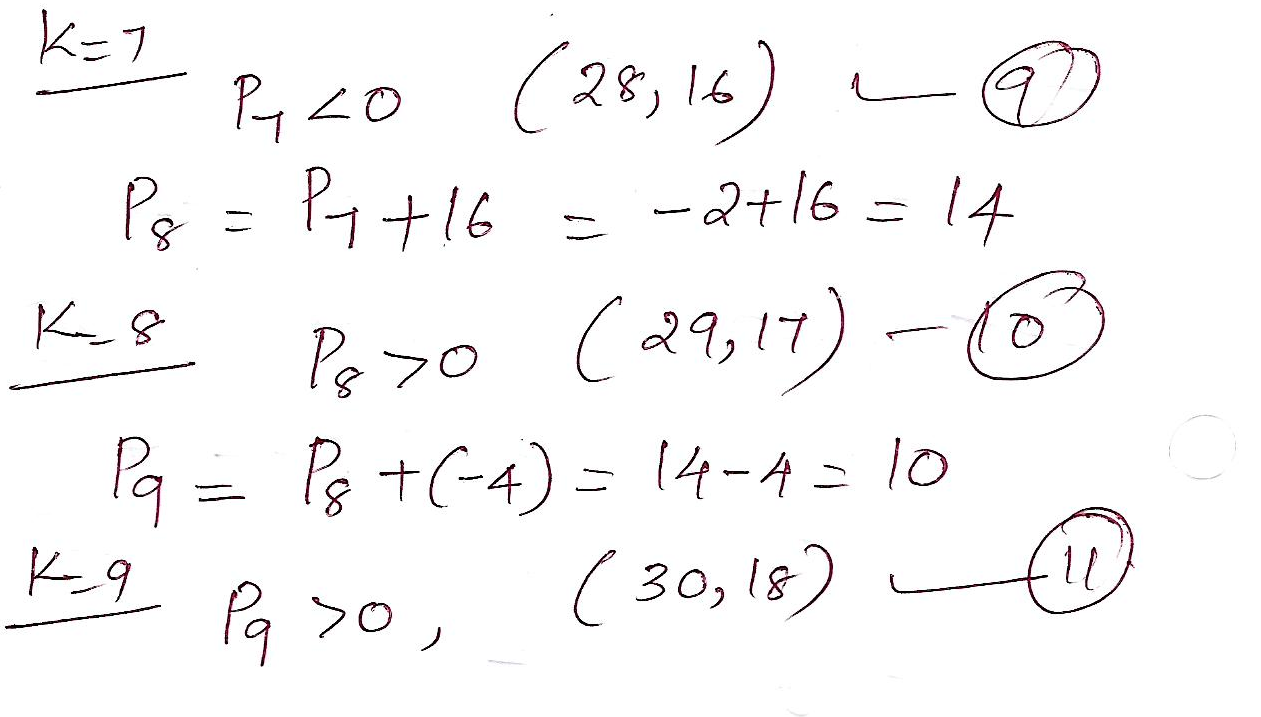 K=7
P₇ <0 (28, 16) — 9
P₈ = P₇ + 16 = -2+16 = 14
K=8
P₈ >0 (29, 17) — 10
P₉ = P₈ +(-4) = 14-4 = 10
K=9
P₉ >0, (30, 18) — 11